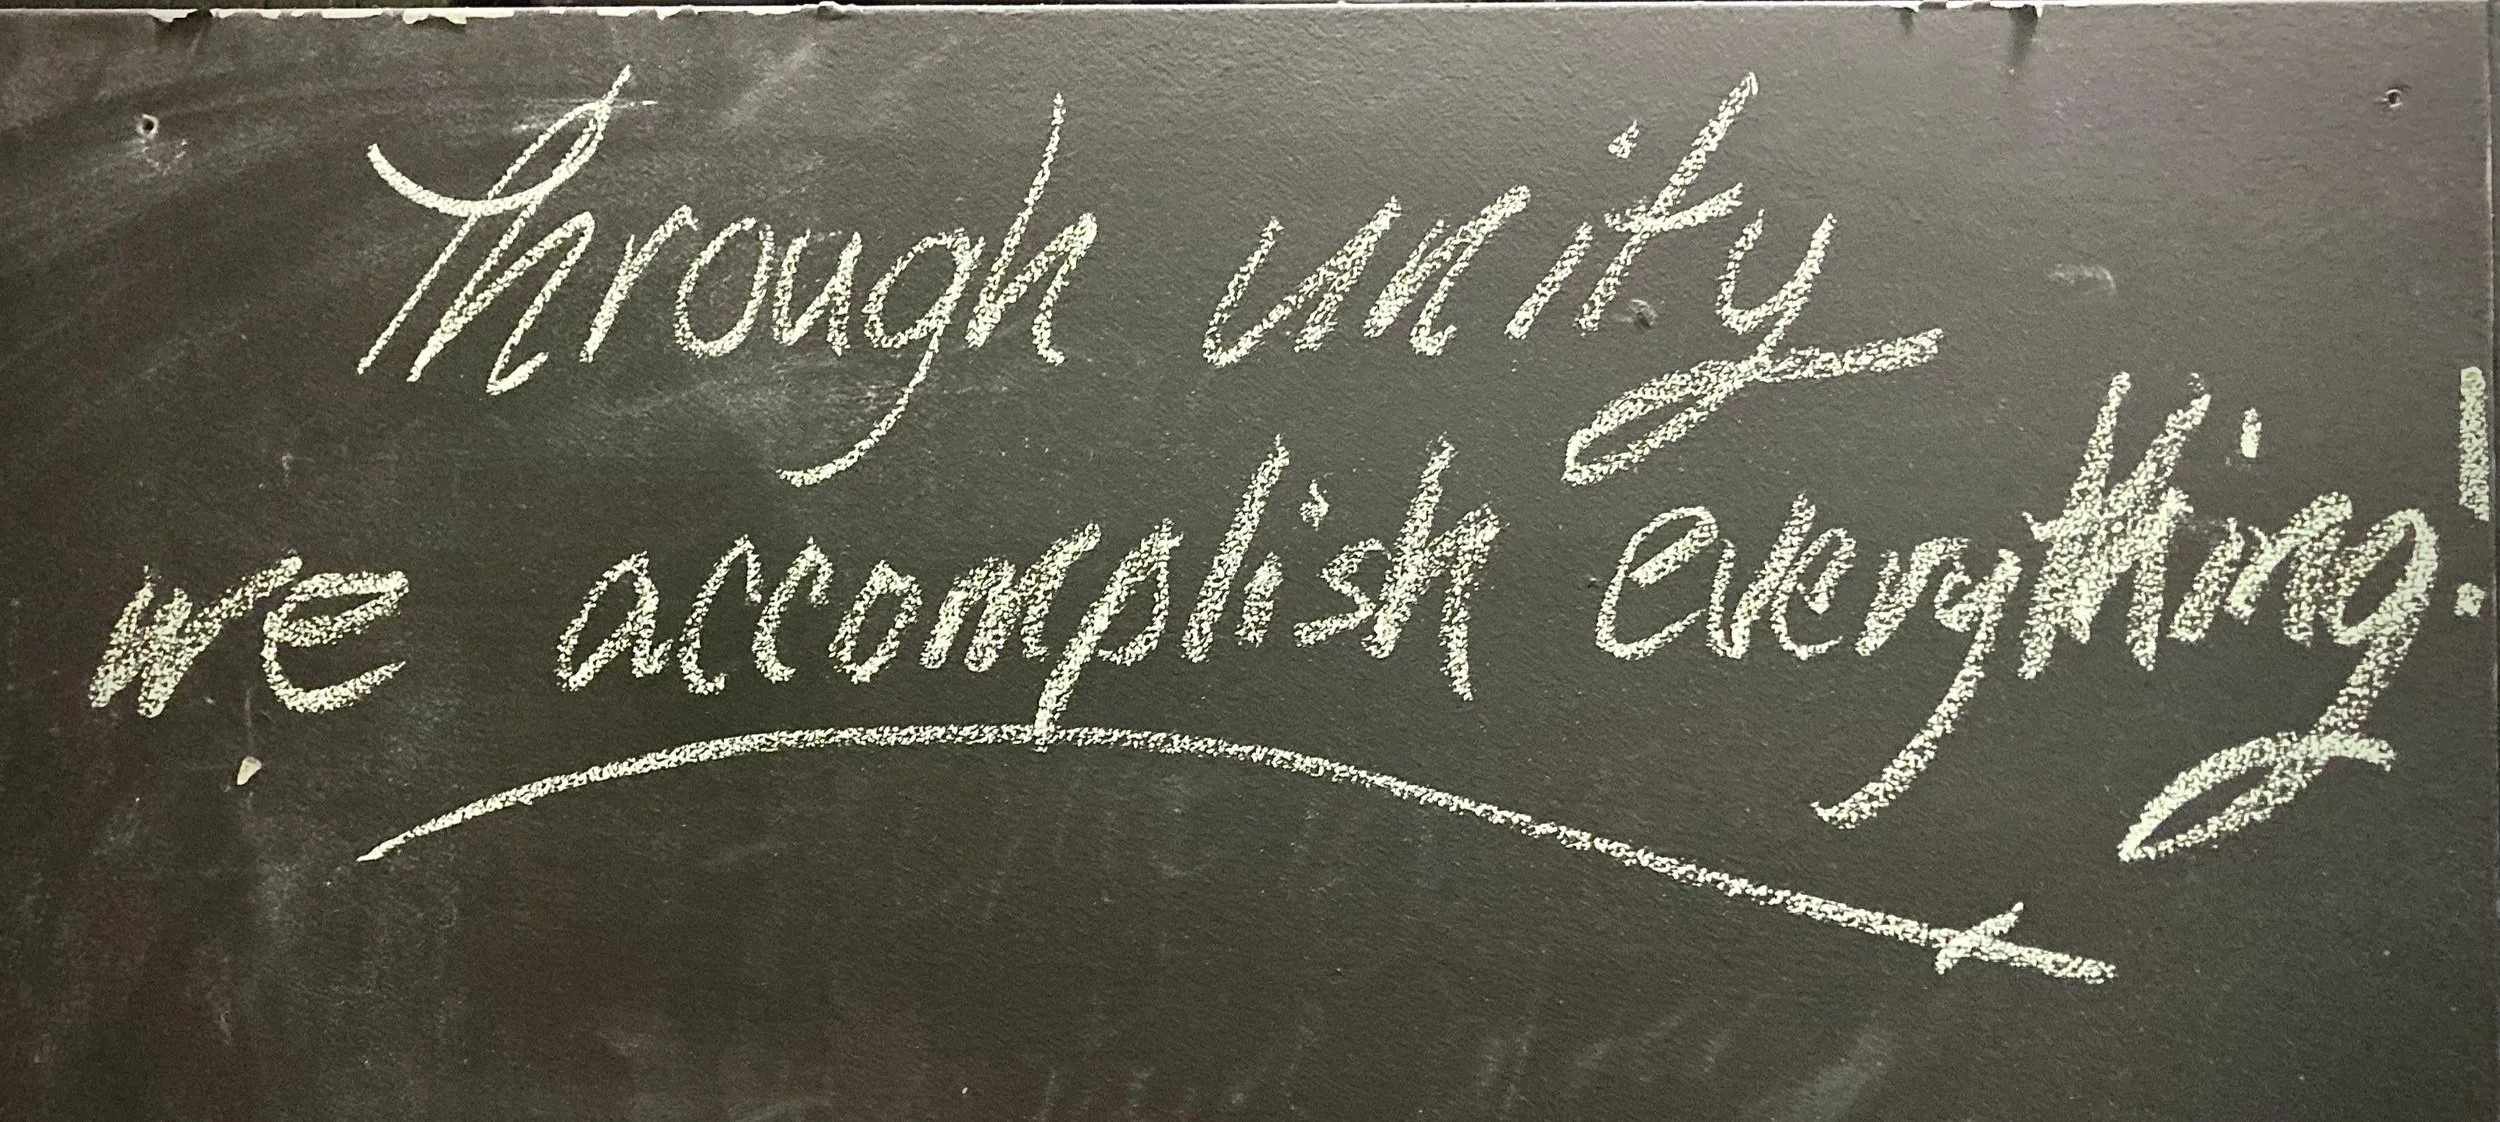 Through unity
we accomplish everything!